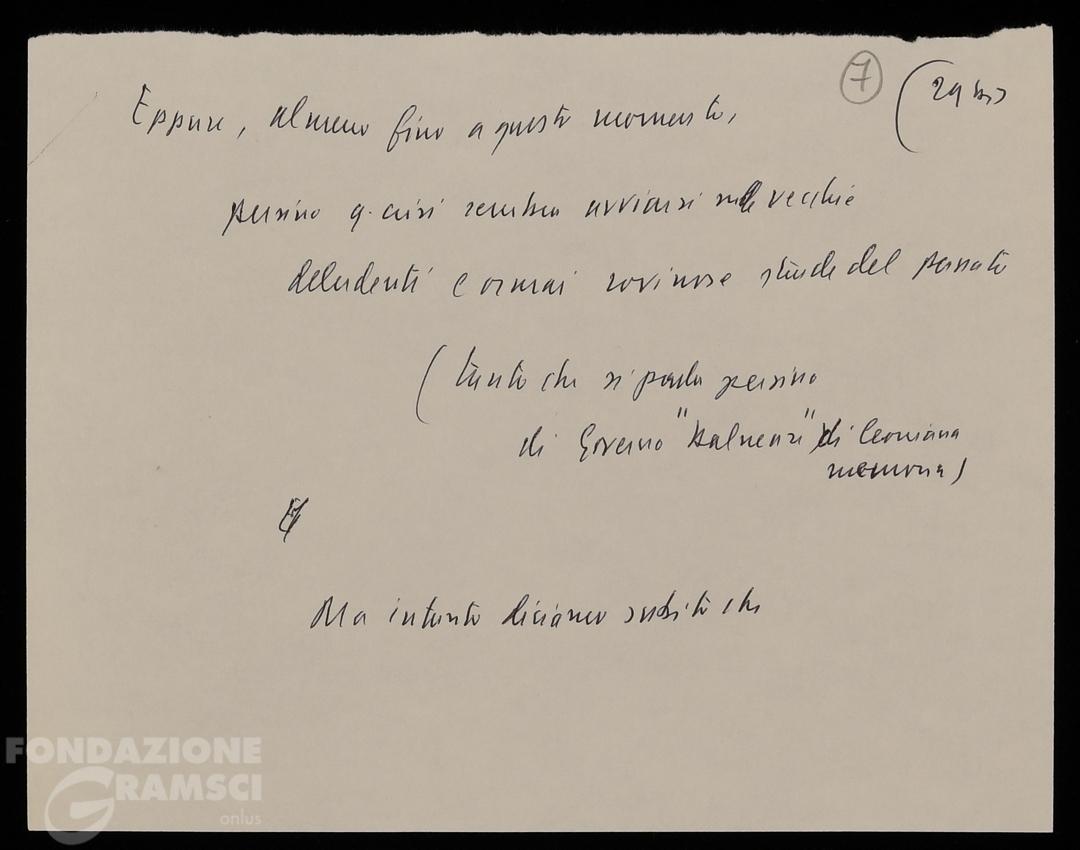 7 (29 bis
Eppure, almeno fino a questo momento,
persino q. crisi sembra avviarsi sulle vecchie
deludenti e ormai rovinose strade del passato
(tanto che si parla persino
di Governo "Balneare" di leoniana
memoria)
Ma intanto diciamo subito che
FONDAZIONE
GRAMSCI
onlus